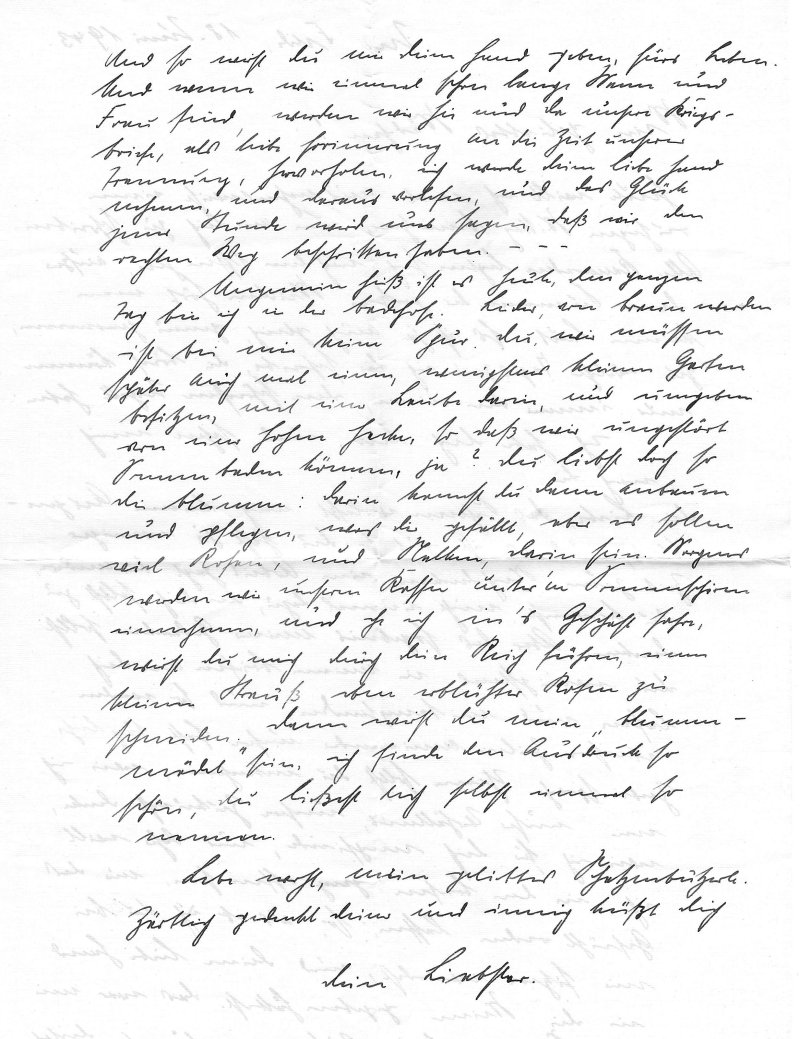 Und so wirst du mir deine Hand geben, fürs Leben.
Und wenn wir einmal schon lange Mann und
Frau sind, werden wir hie und da unsere Kriegs-
briefe, als liebe Erinnerung an die Zeit unserer
Trennung, hervorholen, ich werde deine liebe Hand
nehmen, und daraus vorlesen, und das Glück
jener Stunde wird uns sagen, daß wir den
rechten Weg beschritten haben. - - -
Ungemein heiß ist es heute, den ganzen
Tag bin ich in der Badehose. Leider, von braun werden
ist bei mir keine Spur. du, wir müssen
später auch mal einen, wenigstens kleinen Garten
besitzen, mit einer Laube darin, und umgeben
von einer hohen Hecke, so daß wir ungestört
Sonnenbaden können, ja? du liebst doch so
die Blumen: darin kannst du dann anbauen
und pflegen, was dir gefällt, aber es sollen
viel Rosen, und Nelken, darin sein. Morgens
werden wir unseren Kaffee unter'm Sonnenschirm
einnehmen, und ehe ich in's Geschäft fahre,
wirst du mich durch dein Reich führen, einen
kleinen Strauß eben erblühter Rosen zu
schneiden. dann wirst du mein "Blumen-
mädel" sein, ich finde den Ausdruck so
schön, du ließest dich selbst einmal so
nennen.
Lebe wohl, mein geliebtes Schatzenbützerle.
Zärtlich gedenkt deiner und innig küßt dich
dein Liebster.